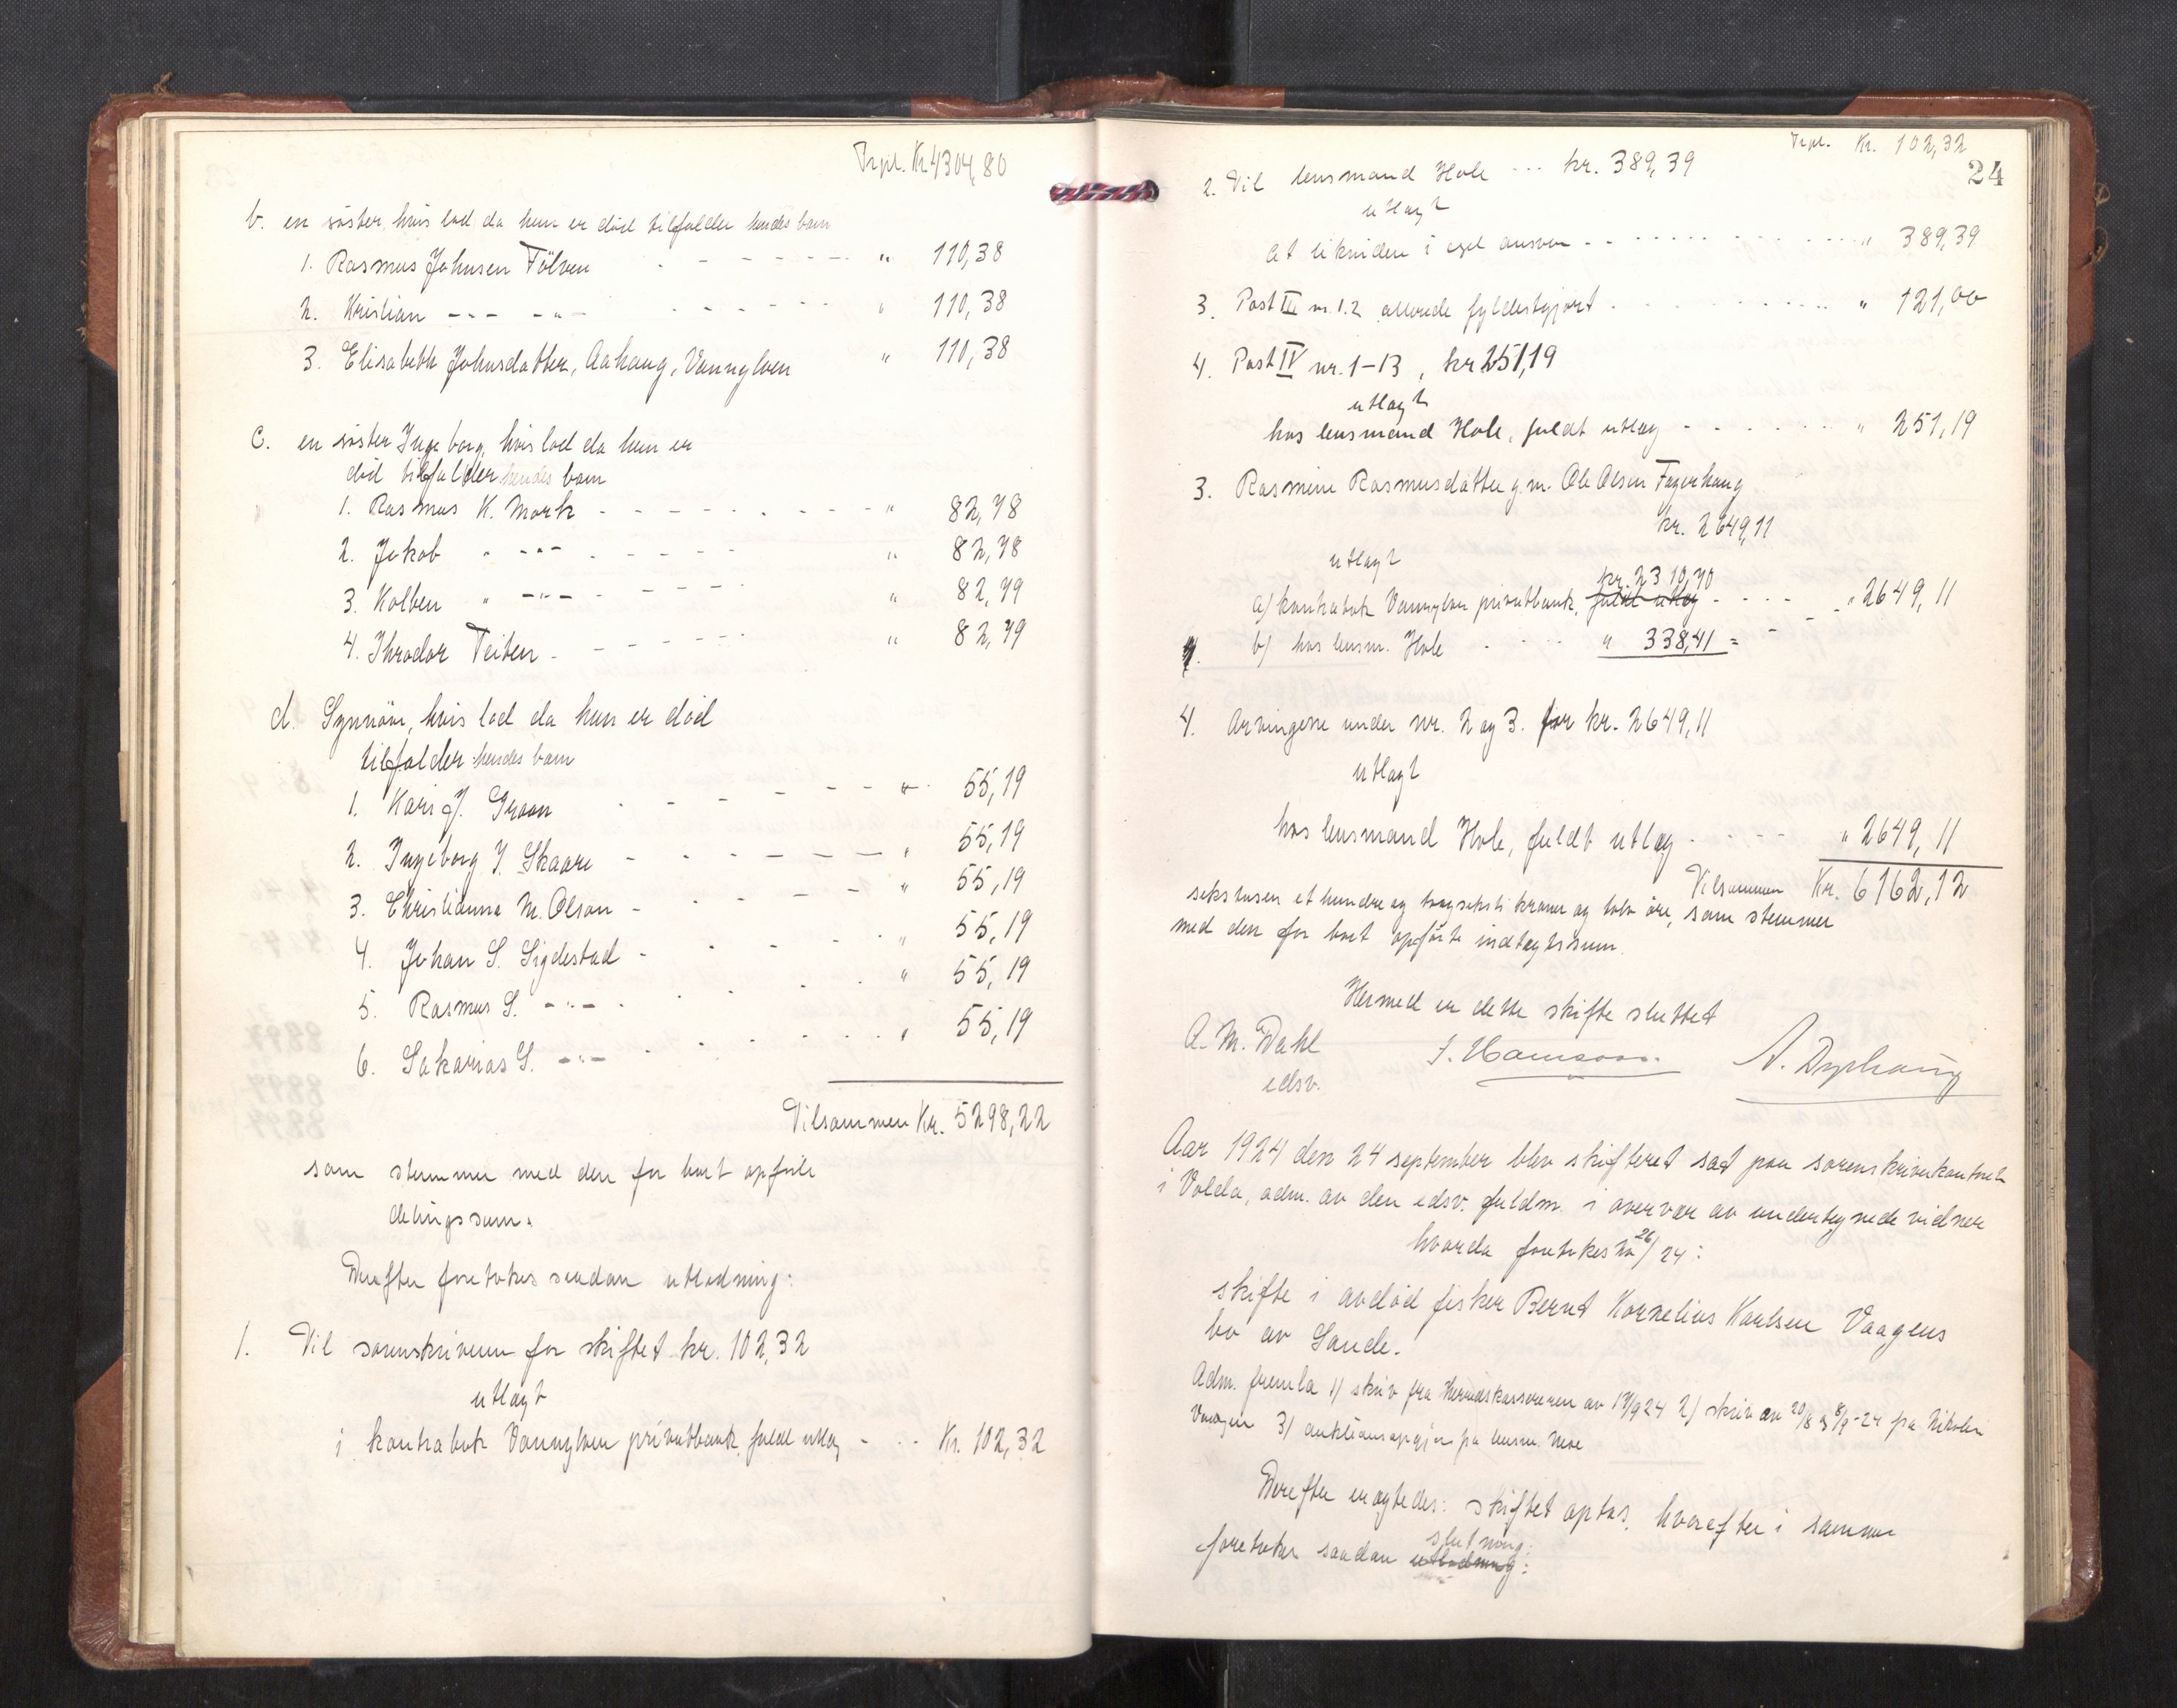 Trpt. Kr 4304,80
b. en søster, hvis lod da hun er død tilfalder hendes barn
1. Rasmus Johnsen Fölsven - - - - - " 110,38
2. Kristian - " - - " - - - - - " 110,38
3. Elisabeth Johnsdatter, Aahaug, Vannylven " 110,38
C. en søster Ingeborg, hvis lod da hun er
död tilfalder hendes barn
1. Rasmus K. Mork - - - - - " 82,78
2. Jakob " - " - - - - - " 82,78
3. Kolben " - " - - - - - " 82,79
4. Throdor Teiten - - - - - " 82,79
d. Synnöve, hvis lod da hun er död
tilfalder hendes barn
1. Kari J. Graan - - - - - " 55,19
2. Ingeborg J. Skaare - - - - - " 55,19
3. Christianna M. Olson - - - - " 55,19
4. Johan S. Sigdestad - - - - " 55,19
5. Rasmus S. - " - - - - " 55,19
6. Sakarias S. - " - - - - " 55,19
Tilsammen Kr. 5298,22
som stemmer med den for bort opförte
delingssum.
Derefter foretokes saadan utlodning:
1. Til sorenskriveren for skiftet kr. 102,32
utlagt
i kontrabok Vannylven privatbank, fuldt utlæg - - - Kr. 102,32
Trpt. Kr. 102,32
24
2. Til lensmand Hole ... kr. 389,39
utlagt
at likvidere i eget ansvar - - - - - " 389,39
3. Post III nr. 1.2 allerede fyldestgjort - - - - " 121,00
4. Post IV nr. 1-13, kr 251,19
utlagt
hos lensmand Hole, fuldt utlæg - - - - " 251,19
3. Rasmine Rasmusdatter g. m. Ole Olsen Fagerhaug
kr. 2649,11
utlagt
kr. 2310,70
a) kontrabok Vannylven privatbank, fuldt utlæg - - - - " 2649,11
b) hos lensm. Hole - - - " 338,41 =
4. Arvingerne under nr. 2 og 3. for kr. 2649,11
utlagt
hos lensmand Hole, fuldt utlæg - - - - " 2649,11
Tilsammen Kr. 6162,12
sekstusen et hundre og togseksti kroner og tolv øre, som stemmer
med den for bort opførte indtægtssum.
Hermed er dette skifte sluttet
A. M. Dahl
edsv.
A. Dyrhaug
Aar 1924 den 24 september blev skifteret sat paa sorenskriverkontoret
i Volda, adm. av den edsv. fuldm. i overvær av undertegnede vidner
hvorda foretokes nr 26/24:
skifte i avdød fisker Bernt Kornelius Karlsen Vaagens
bo av Sande.
Adm. fremla 1) skriv fra Herredskassereren av 17/9 24 2) skriv av 20/8 & 8/9-24 fra Nikolai
Vaagen 3) auktionsopgjør fra lensm. Moe
Derefter vedtokes: skiftet optas, hvorefter i samme
slutning:
foretokes saadan utlodning: